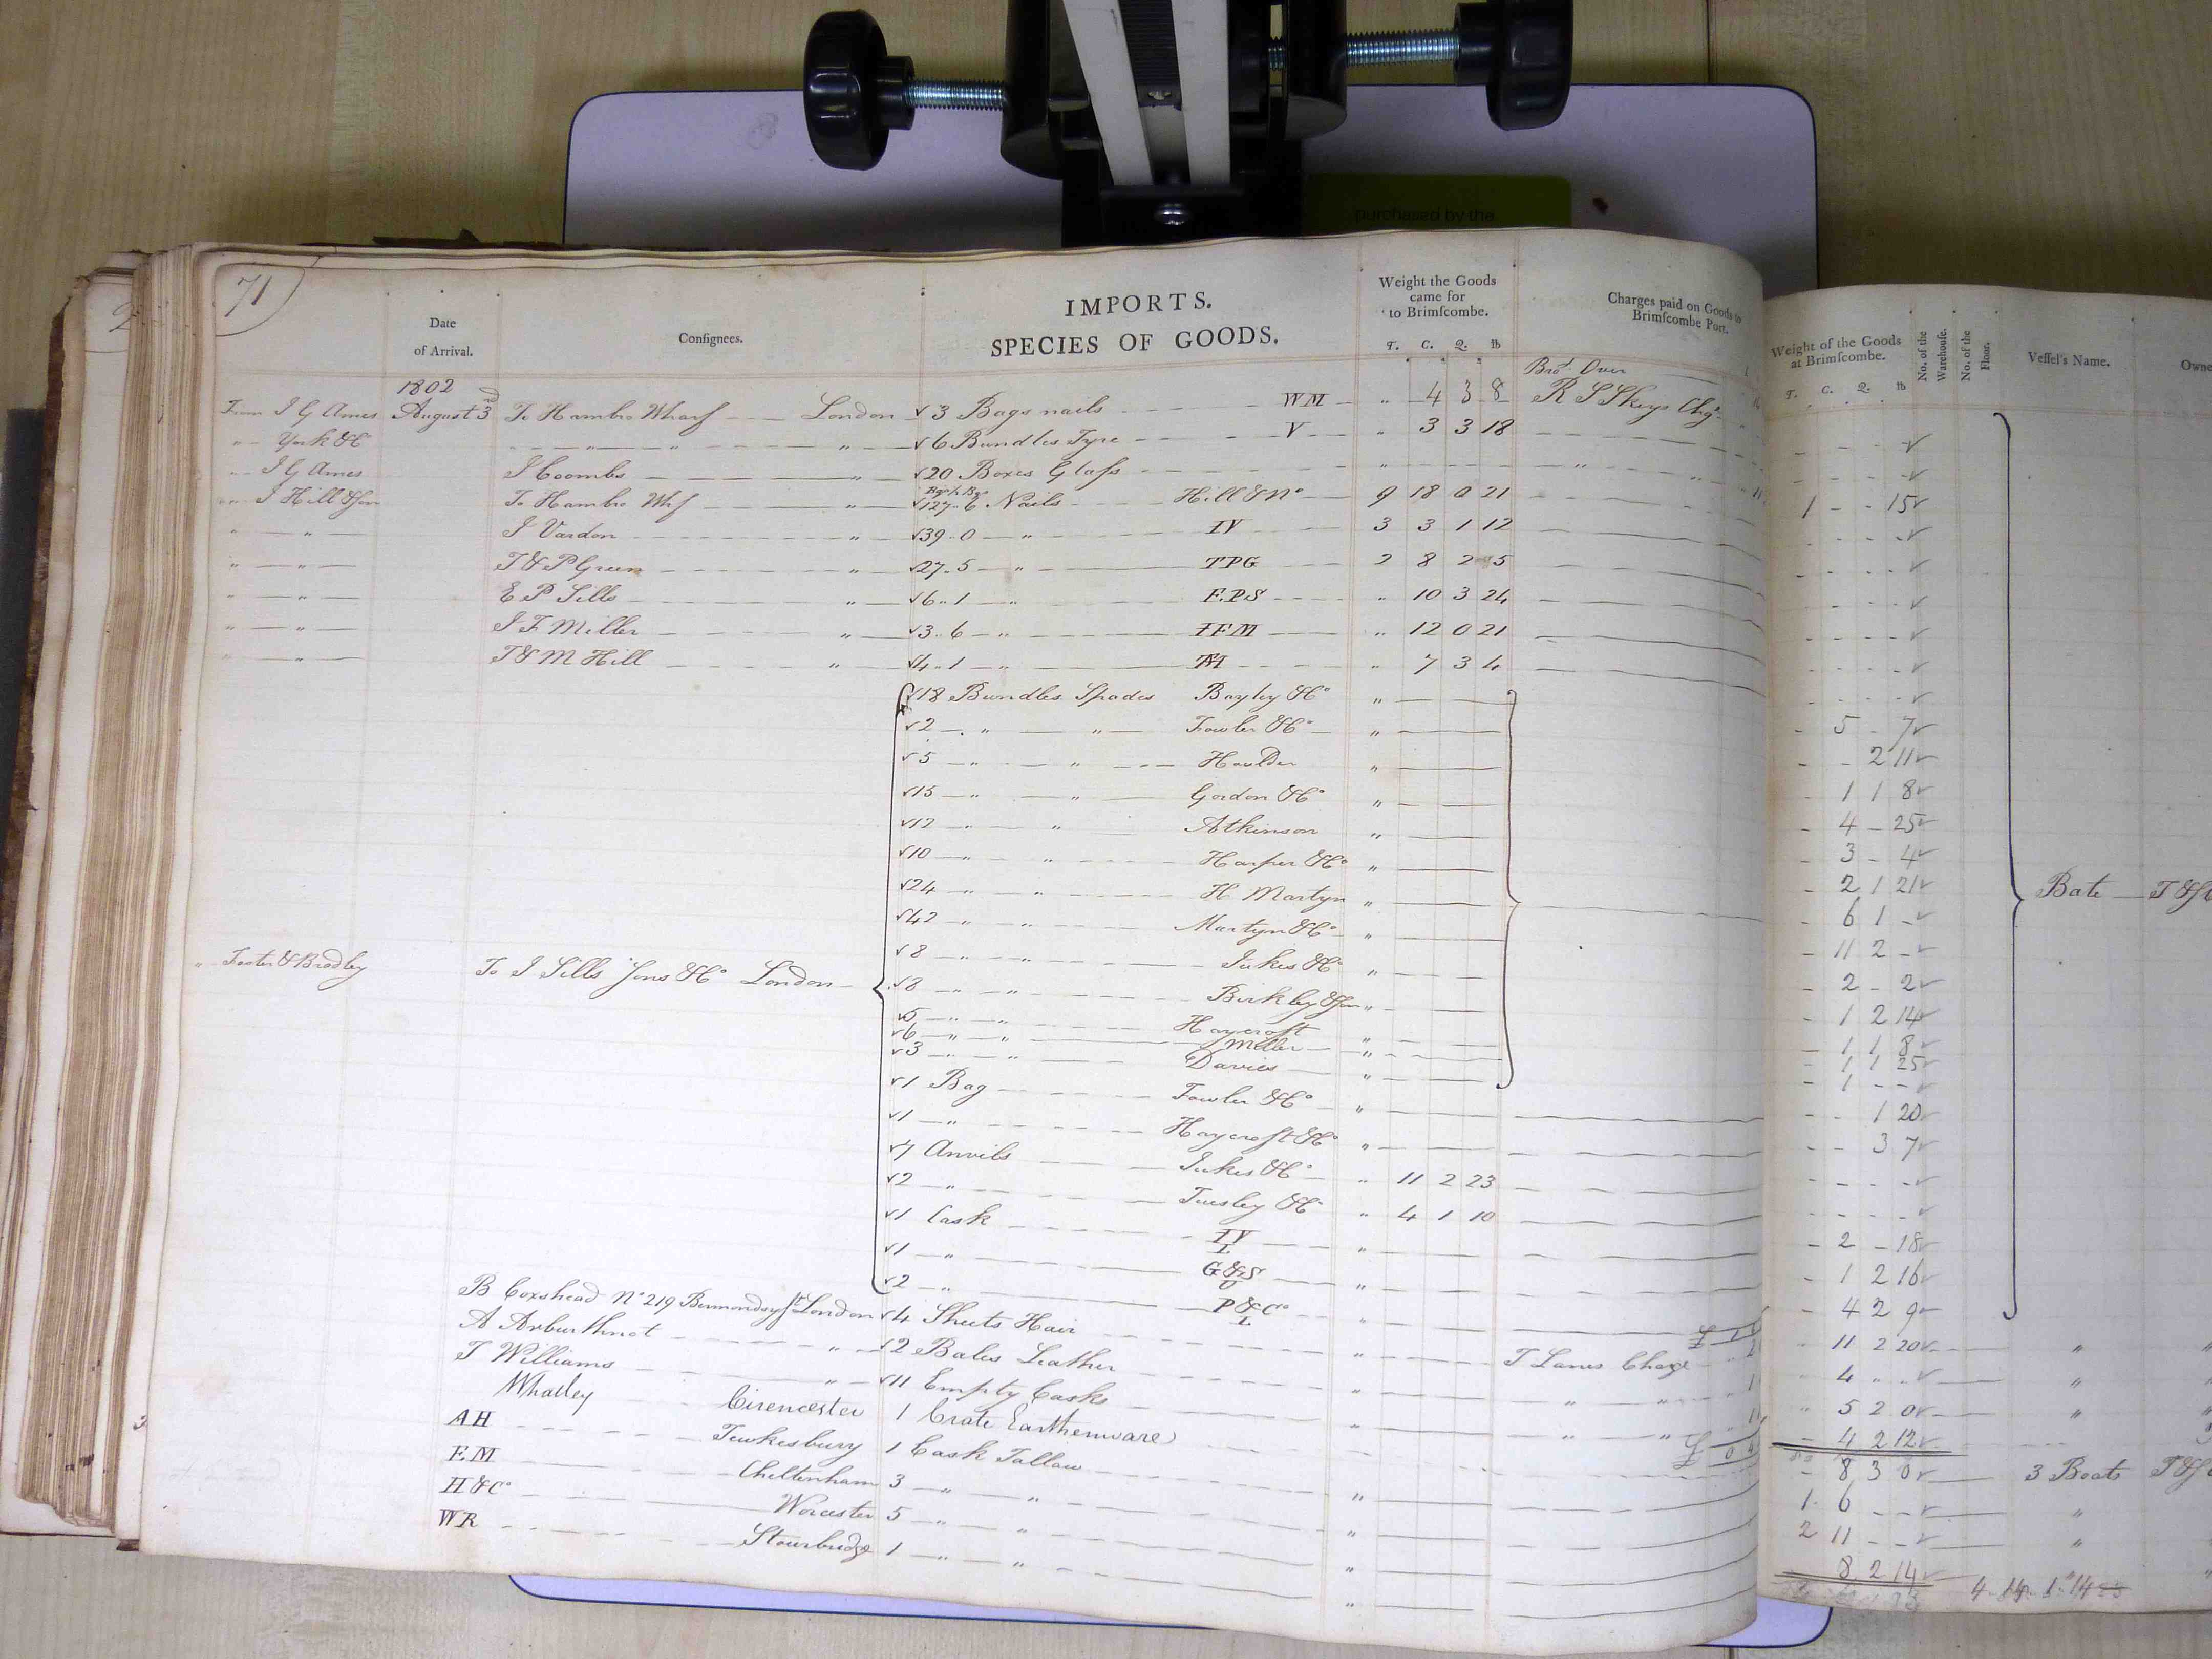 purchased by the
71
IMPORTS.
Date of Arrival.
Consignees.
SPECIES OF GOODS.
Weight the Goods came for to Brimscombe.
T. C. Q. lb
Charges paid on Goods to Brimscombe Port.
Weight of the Goods at Brimscombe.
T. C. Q. lb
No. of the Warehouse.
No. of the Floor.
Vessel's Name.
Owne
1802
Brot Over
From I G Ames August 3rd To Hambro Wharf London 3 Bags nails WM " 4 3 8 R S Skeys Chgs
" York &Co " " 6 Bundles Tyre V " 3 3 18
" I G Ames I Coombs " 20 Boxes Glass " "
" I Hill &Son To Hambro Whf " 127 .. 6 Nails Hill &No 9 18 0 21 1 - - 15
" " I Vardon " 39 .. 0 " IV 3 3 1 12
" " T & P Green " 27 .. 5 " TPG 2 8 2 5
" " E P Sills " 6 .. 1 " EPS " 10 3 24
" " I F Miller " 3 .. 6 " IFM " 12 0 21
" " T & M Hill " 4 .. 1 " " 7 3 4
18 Bundles Spades Bayley &Co " - 5 - 7
2 " " Fowler &Co " - - 2 11
5 " " Houlder " - 1 1 8
15 " " Gordon &Co " - 4 - 25
12 " " Atkinson " - 3 - 4
10 " " Harper &Co " - 2 1 21
24 " " H Martyn " - 6 1 - Bate T &
42 " " Martyn &Co " - 11 2 -
8 " " Jukes &Co " - 2 - 2
" Foster & Bradley To I Sills Sons &Co London 8 " " Birkley &Son " - 1 2 14
5 " " Haycroft " - 1 1 8
6 " " Miller " - 1 1 25
3 " " Davies " - 1 - -
1 Bag Fowler &Co " - - 1 20
1 " Haycroft &Co " - - 3 7
7 Anvils Jukes &Co " 11 2 23
2 " Tuesley &Co " 4 1 10
1 Cask IV I " - 2 - 18
1 " G&S " - 1 2 16
2 " P&Co I " - 4 2 9
B Coxshead No 219 Bermondsey St London 4 Sheets Hair " £ " 11 2 20 "
A Arburthnot " 2 Bales Leather " T Lanes Charge " 4 "
T Williams " 11 Empty Casks " " " " 5 2 0 "
Whatley Cirencester 1 Crate Earthenware " " " - 4 2 12
AH Tewkesbury 1 Cask Tallow £ 0 - 8 3 0 3 Boats T &
EM Cheltenham 3 " " " 1 6 - - "
H&Co Worcester 5 " " " 2 11 - - "
WR Stourbridge 1 " " " 8 2 14 "